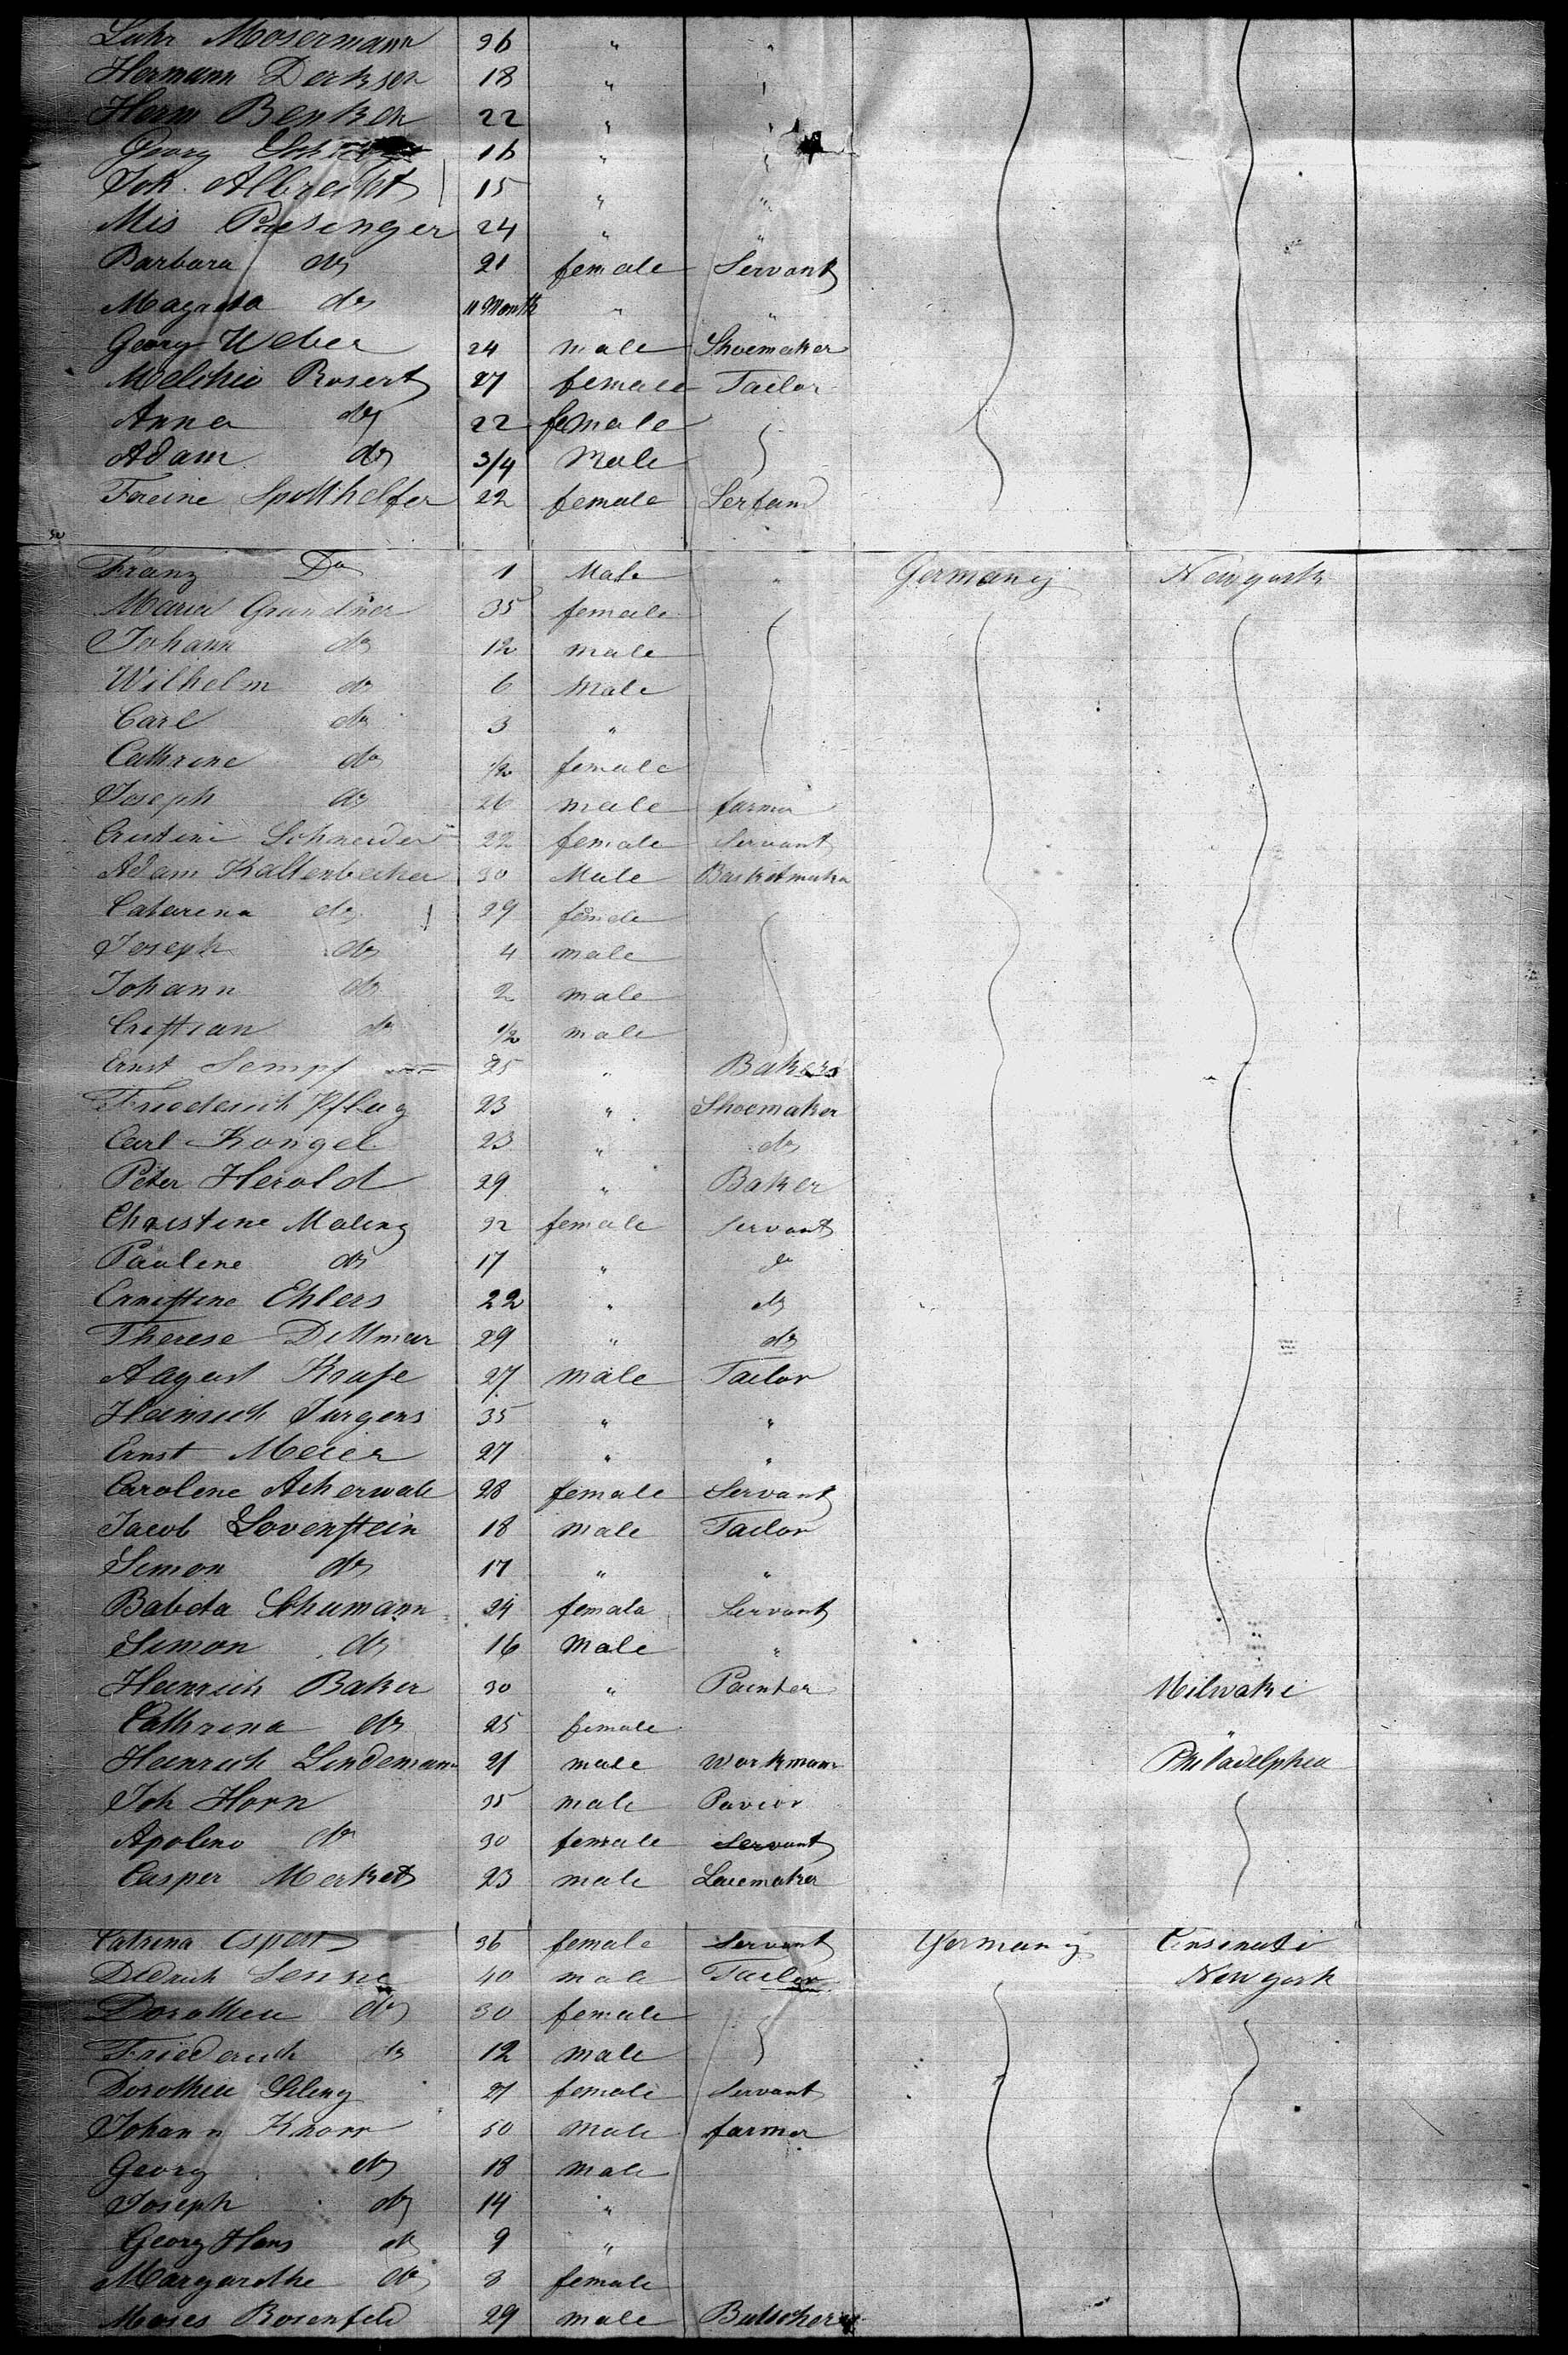 Luhr Mosermann 26 " "
Hermann Derksen 18 " "
Herm Benken 22 " "
Georg 16 " "
Joh. Albrecht 15 " "
Mis Piesinger 24 " "
Barbara do 21 female Servant
Magreta do 11 Month " "
Georg Weber 24 male Shoemaker
Melchio Rosert 27 female Tailor
Anna do 22 female
Adam do 3/4 Male
Spotthelfer 22 female Serfand
Franz Do 1 Male " Germany Newyork
Maria Grundner 35 female
Johann do 12 male
Wilhelm do 6 Male
Carl do 3 "
Cathrine do 1/2 female
Joseph do 26 male farmer
Cristine Schneider 22 female Servant
Adam Kaltenbecher 30 Male Basketmaker
Catarina do 29 female
Joseph do 4 male
Johann do 2 male
Cristian do 1/2 male
Ernst Sempf 25 " Baker
Friederich Pflug 23 " Shoemaker
Carl Kongel 23 " do
Peter Herold 29 " Baker
Christine Maling 32 female Servant
Pauline do 17 " do
Ernistine Ehlers 22 " do
Therese Dittmar 29 " do
August Kruse 27 male Tailor
Heinrich Jurgens 35 " "
Ernst Meier 27 " "
Caroline Ackerwall 28 female Servant
Jacob Lovenstein 18 male Tailor
Simon do 17 " "
Babeta Schumann 24 female Servant
Simon do 16 Male "
Heinrich Baker 30 " Painter Milwaki
Cathrina do 25 female "
Heinrich Lindemann 21 male Workmann Philadelphia
Joh Horn 35 male Pavior
Apolino do 30 female Servant
Casper Merket 23 male Lacemaker
Catrina Espert 36 female Servant Germany Cinsinati
Didrich Senne 40 male Tailor Newyork
Dorothea do 30 female
Friederich do 12 male
Dorothea 21 female Servant
Johann Knorr 50 Male farmer
Georg do 18 male
Joseph do 14 "
Georg Hans do 9 "
Margarethe do 8 female
Moses Rosenfeld 29 male Butscher